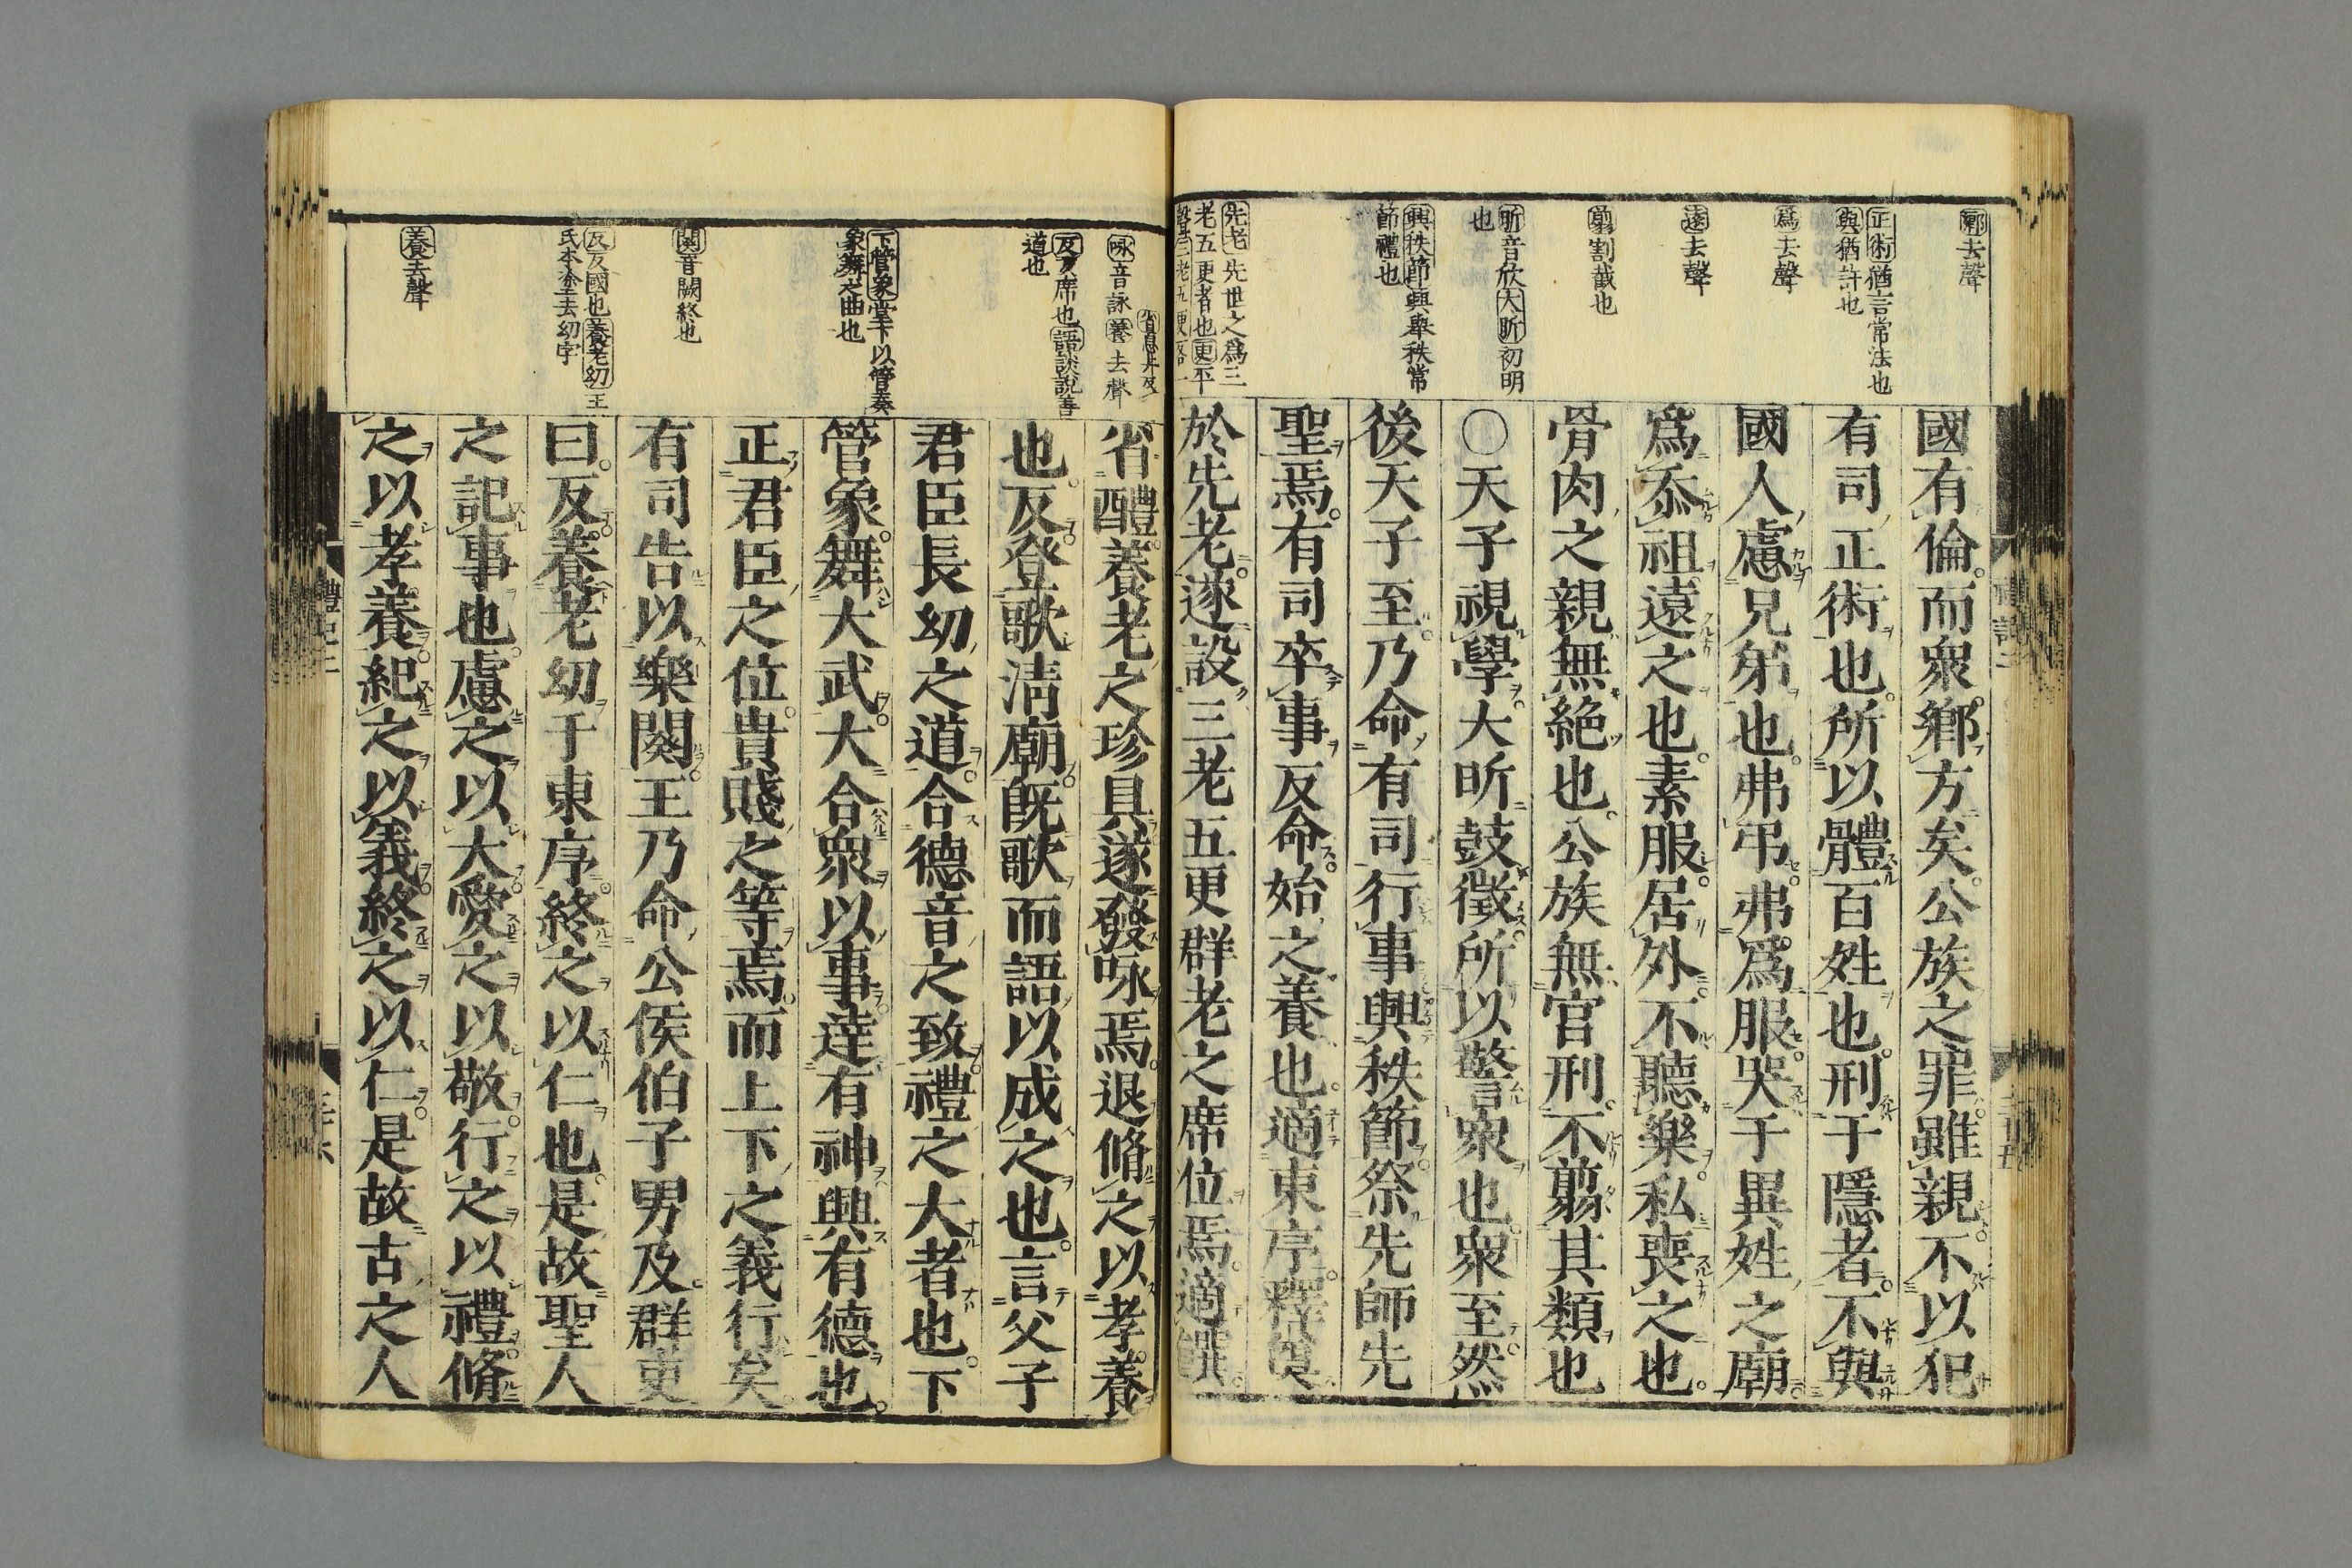 鄕去聲
正術猶言常法也
與猶許也
爲去聲
遠去聲
翦割截也
昕音欣大昕初明
也
興秩節興擧秩常
節禮也
先老先世之爲三
老五更者也更平
國有倫而衆鄕方矣公族之罪雖親不以犯
有司正術也所以體百姓也刑于隱者不與
國人慮兄弟也弗弔弗爲服哭于異姓之廟
爲忝祖遠之也素服居外不聽樂私喪之也
骨肉之親無絶也公族無宮刑不翦其類也
○天子視學大昕鼓徵所以警衆也衆至然
後天子至乃命有司行事興秩節祭先師先
聖焉有司卒事反命始之養也適東序釋奠
於先老遂設三老五更群老之席位焉適饌
省醴養老之珍具遂發咏焉退脩之以孝養
也反登歌淸廟旣歌而語以成之也言父子
君臣長幼之道合德音之致禮之大者也下
管象舞大武大合衆以事達有神興有德也
正君臣之位貴賤之等焉而上下之義行矣
有司告以樂闋王乃命公侯伯子男及群吏
曰反養老幼于東序終之以仁也是故聖人
之記事也慮之以大愛之以敬行之以禮脩
之以孝養紀之以義終之以仁是故古之人
咏音詠養去聲
反反席也語談說善
道也
下管象堂下以管奏
象舞之曲也
闋音闕終也
反反國也養老幼王
氏本塗去幼字
養去聲
禮記二